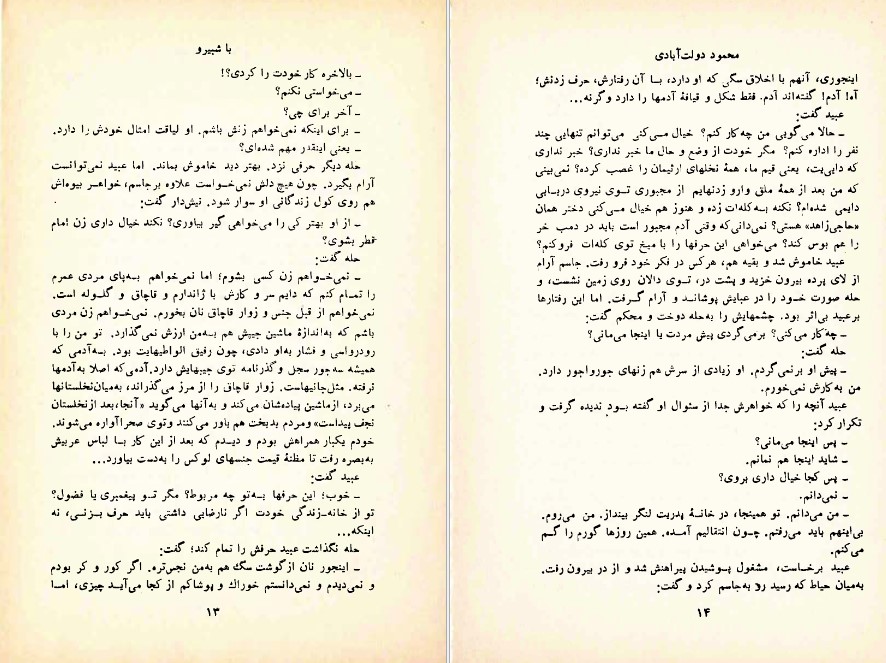 با شبیرو
ـ بالاخره کار خودت را کردی؟!
ـ می‌خواستی نکنم؟
ـ آخر برای چی؟
ـ برای اینکه نمی‌خواهم زنش باشم. او لیاقت امثال خودش را دارد.
ـ یعنی اینقدر مهم شده‌ای؟
حله دیگر حرفی نزد. بهتر دید خاموش بماند. اما عبید نمی‌توانست
آرام بگیرد. چون هیچ دلش نمی‌خواست علاوه برجاسم، خواهر بیوه‌اش
هم روی کول زندگانی او سوار شود. نیش‌دار گفت:
ـ از او بهتر کی را می‌خواهی گیر بیاوری؟ نکند خیال داری زن امام
قطر بشوی؟
حله گفت:
ـ نمی‌خواهم زن کسی بشوم؛ اما نمی‌خواهم به‌پای مردی عمرم
را تمام کنم که دایم سر و کارش با ژاندارم و قاچاق و گلوله است.
نمی‌خواهم از قبل جنس و زوار قاچاق نان بخورم. نمی‌خواهم زن مردی
باشم که به‌اندازهٔ ماشین جیبش هم به‌من ارزش نمی‌گذارد. تو من را با
رودرواسی و فشار به‌او دادی، چون رفیق الواطیهایت بود. به‌آدمی که
همیشه سه‌جور سجل و گذرنامه توی جیبهایش دارد. آدمی‌که اصلا به‌آدمها
نرفته. مثل‌جانیهاست. زوار قاچاق را از مرز می‌گذراند، به‌میان‌نخلستانها
می‌برد، ازماشین پیاده‌شان می‌کند و به‌آنها می‌گوید «آنجا،بعد ازنخلستان
نجف پیداست» ومردم بدبخت هم باور می‌کنند وتوی صحراآواره می‌شوند.
خودم یکبار همراهش بودم و دیدم که بعد از این کار با لباس عربیش
به‌بصره رفت تا مظنهٔ قیمت جنسهای لوکس را به‌دست بیاورد...
عبید گفت:
ـ خوب؛ این حرفها به‌تو چه مربوط؟ مگر تو پیغمبری یا فضول؟
تو از خانه‌ـ‌زندگی خودت اگر نارضایی داشتی باید حرف بزنی، نه
اینکه...
حله نگذاشت عبید حرفش را تمام کند؛ گفت:
ـ اینجور نان ازگوشت سگ هم به‌من نجس‌تره. اگر کور و کر بودم
و نمی‌دیدم و نمی‌دانستم خوراك و پوشاکم از کجا می‌آید چیزی، اما
۱۳
محمود دولت‌آبادی
اینجوری، آنهم با اخلاق سگی که او دارد، با آن رفتارش، حرف زدنش؛
آه! آدم! گفته‌اند آدم. فقط شکل و قیافهٔ آدمها را دارد وگرنه...
عبید گفت:
ـ حالا می‌گویی من چه‌کار کنم؟ خیال می‌کنی می‌توانم تنهایی چند
نفر را اداره کنم؟ مگر خودت از وضع و حال ما خبر نداری؟ خبر نداری
که دایی‌یت، یعنی قیم ما، همهٔ نخلهای ارثیمان را غصب کرده؟ نمی‌بینی
که من بعد از همهٔ ملق وارو زدنهایم از مجبوری توی نیروی دریایی
دایمی شده‌ام؟ نکنه به‌کله‌ات زده و هنوز هم خیال می‌کنی دختر همان
«حاجی‌زاهد» هستی؟ نمی‌دانی‌که وقتی آدم مجبور است باید در دمب خر
را هم بوس کند؟ می‌خواهی این حرفها را با میخ توی کله‌ات فروکنم؟
عبید خاموش شد و بقیه هم، هرکس در فکر خود فرو رفت. جاسم آرام
از لای پرده بیرون خزید و پشت در، توی دالان روی زمین نشست، و
حله صورت خود را در عبایش پوشاند و آرام گرفت. اما این رفتارها
برعبید بی‌اثر بود. چشمهایش را به‌حله دوخت و محکم گفت:
ـ چه‌کار می‌کنی؟ برمی‌گردی پیش مردت یا اینجا می‌مانی؟
حله گفت:
ـ پیش او برنمی‌گردم. او زیادی از سرش هم زنهای جورواجور دارد.
من به‌کارش نمی‌خورم.
عبید آنچه را که خواهرش جدا از سئوال او گفته بود ندیده گرفت و
تکرار کرد:
ـ پس اینجا می‌مانی؟
ـ شاید اینجا هم نمانم.
ـ پس کجا خیال داری بروی؟
ـ نمی‌دانم.
ـ من می‌دانم. تو همینجا، در خانهٔ پدریت لنگر بینداز. من می‌روم.
بی‌اینهم باید می‌رفتم. چون انتقالیم آمده. همین روزها گورم را گم
می‌کنم.
عبید برخاست، مشغول پوشیدن پیراهنش شد و از در بیرون رفت.
به‌میان حیاط که رسید رو به‌جاسم کرد و گفت:
۱۴